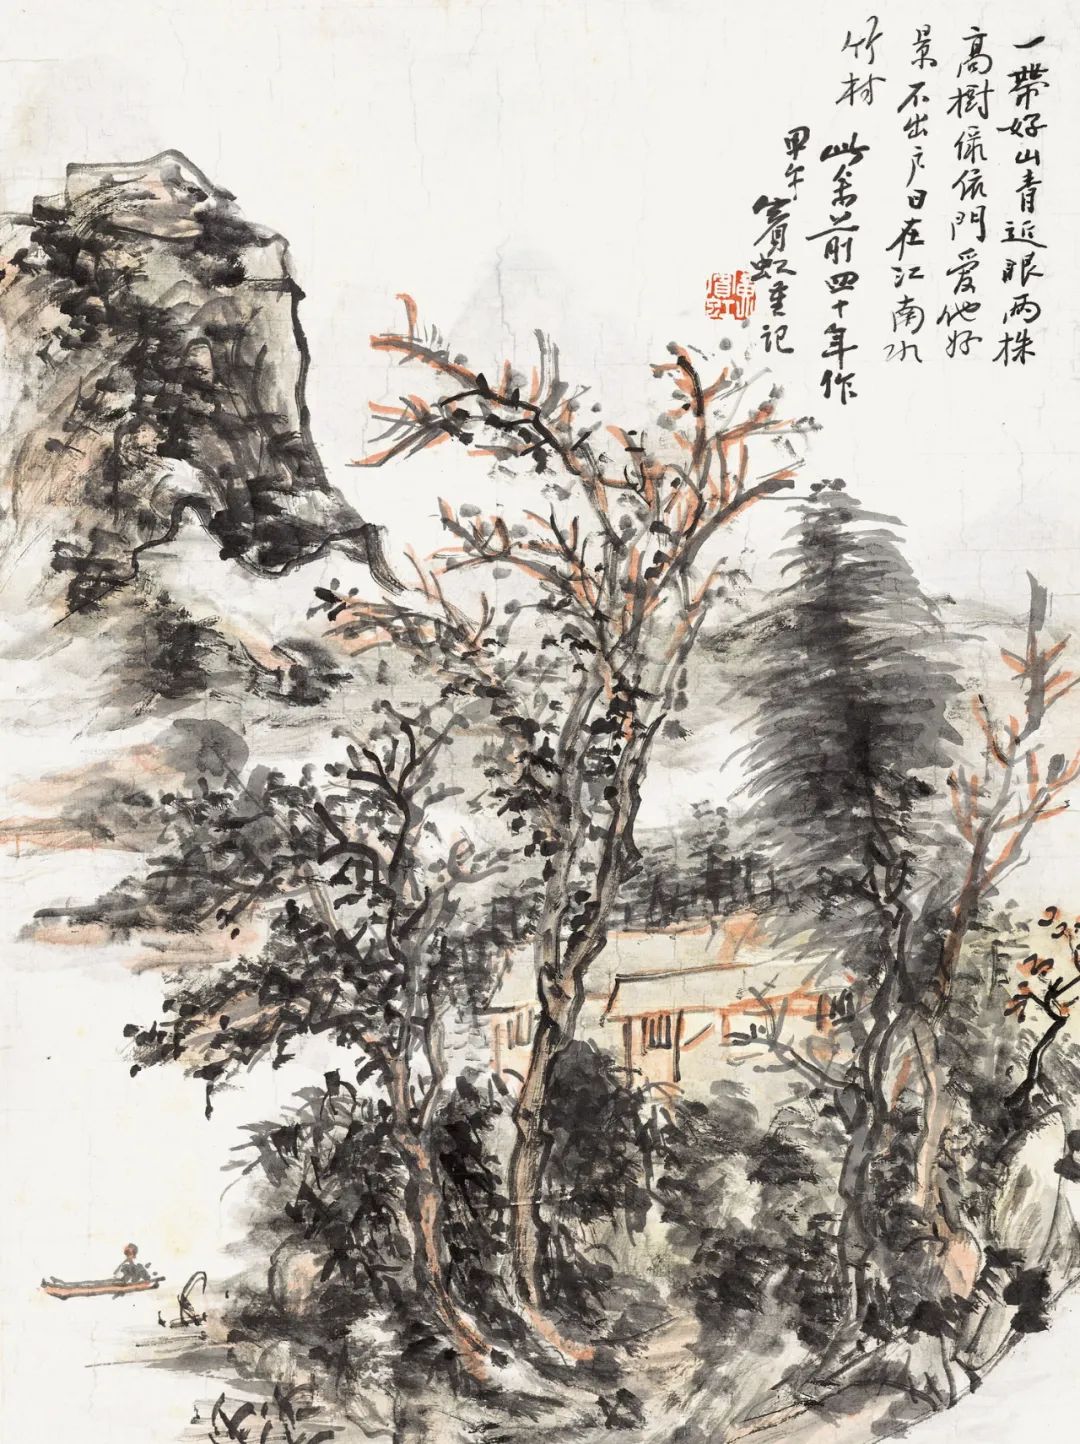 一带好山青近眼兩株
高樹綠依門愛他好
景不出户日在江南水
竹村
此余前四十年作
甲午賓虹重記